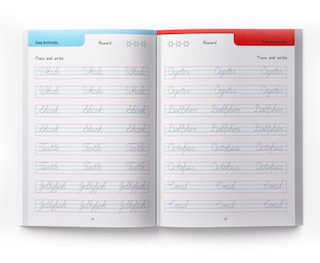 Sea Animals Reward
Trace and write
Whale Whale Whale
Whale Whale Whale
Shark Shark Shark
Shark Shark Shark
Turtle Turtle Turtle
Turtle Turtle Turtle
Jellyfish Jellyfish Jellyfish
Jellyfish Jellyfish Jellyfish
Reward Sea Animals
Trace and write
Oyster Oyster Oyster
Oyster Oyster Oyster
Dolphin Dolphin Dolphin
Dolphin Dolphin Dolphin
Octopus Octopus Octopus
Octopus Octopus Octopus
Coral Coral Coral
Coral Coral Coral